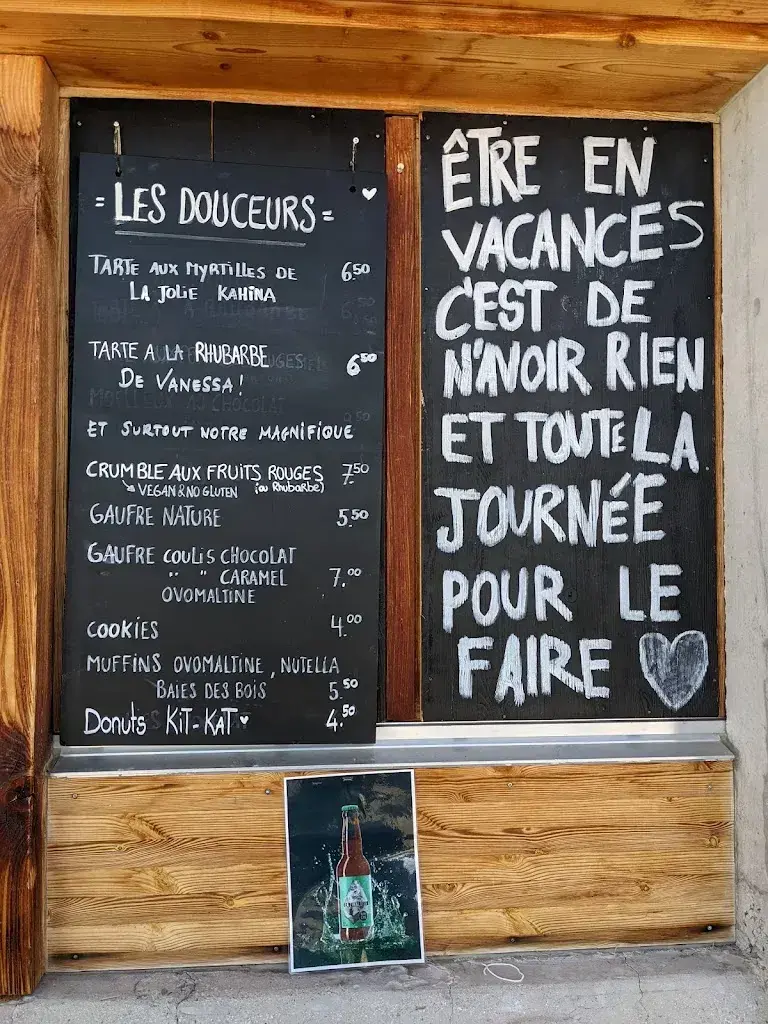 = LES DOUCEURS =
TARTE AUX MYRTILLES DE 6.50
LA JOLIE KAHINA
TARTE A LA RHUBARBE 6.50
DE VANESSA!
ET SURTOUT NOTRE MAGNIFIQUE
CRUMBLE AUX FRUITS ROUGES 7.50
VEGAN & NO GLUTEN (ou Rhubarbe)
GAUFRE NATURE 5.50
GAUFRE COULIS CHOCOLAT
" " CARAMEL 7.00
OVOMALTINE
COOKIES 4.00
MUFFINS OVOMALTINE, NUTELLA
BAIES DES BOIS 5.50
Donuts KIT-KAT 4.50
ÊTRE EN
VACANCES
C'EST DE
N'AVOIR RIEN
ET TOUTE LA
JOURNÉE
POUR LE
FAIRE